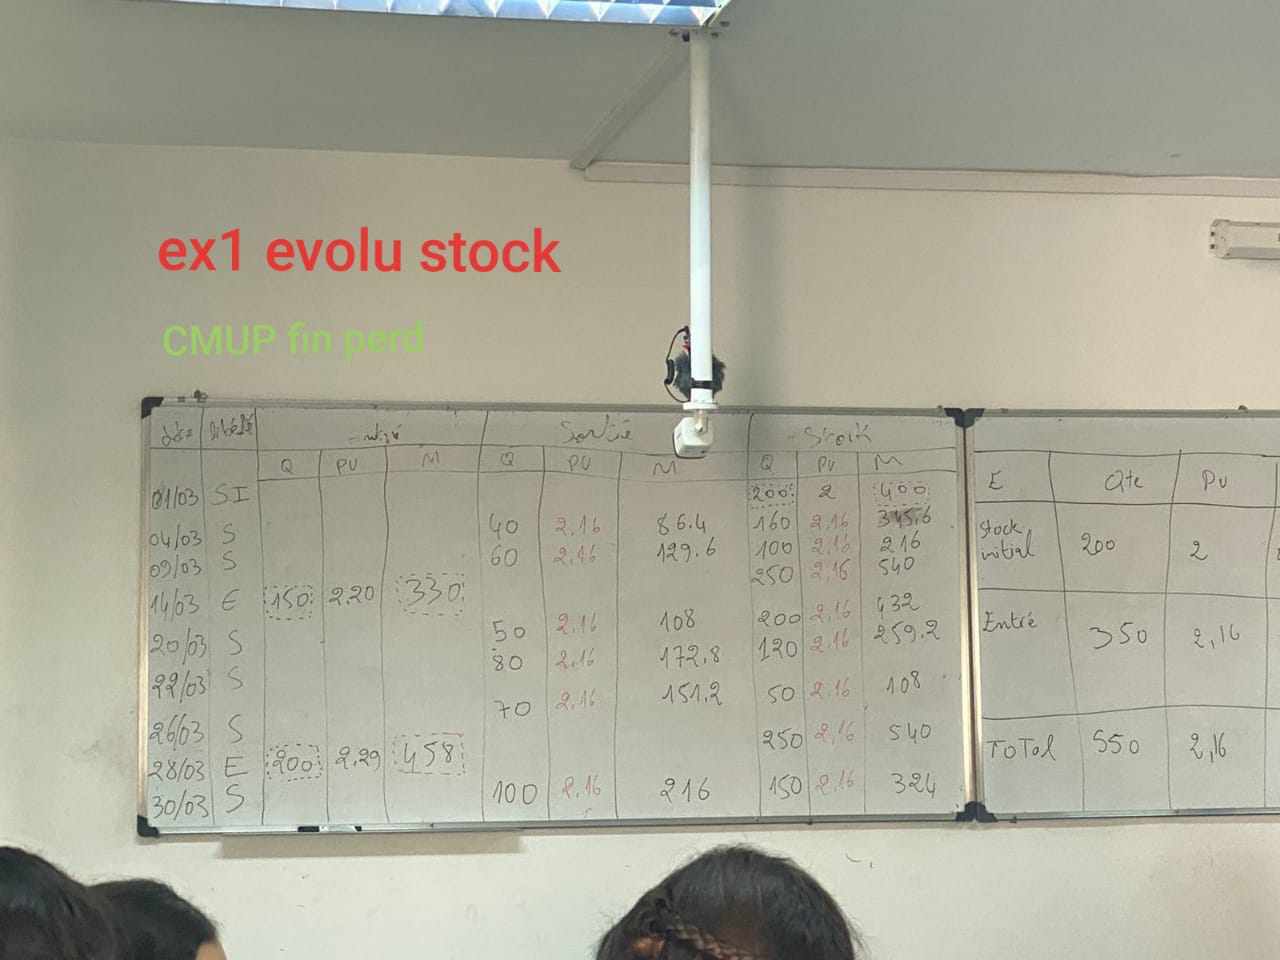 ex1 evolu stock
CMUP fin perd
Sortie Stock
Q PU M Q PU M Q PU M
01/03 S.I 200 2 400
04/03 S 40 2.16 86.4 160 2,16 345.6
09/03 S 60 2.16 129.6 100 2,16 216
14/03 E 150 2.20 330 250 2,16 540
20/03 S 50 2.16 108 200 2,16 432
22/03 S 80 2.16 172.8 120 2,16 259.2
26/03 S 70 2.16 151.2 50 2,16 108
28/03 E 200 2.29 458 250 2,16 540
30/03 S 100 2.16 216 150 2,16 324
E Qte PU
Stock
initial 200 2
Entré 350 2,16
ToTol 550 2,16